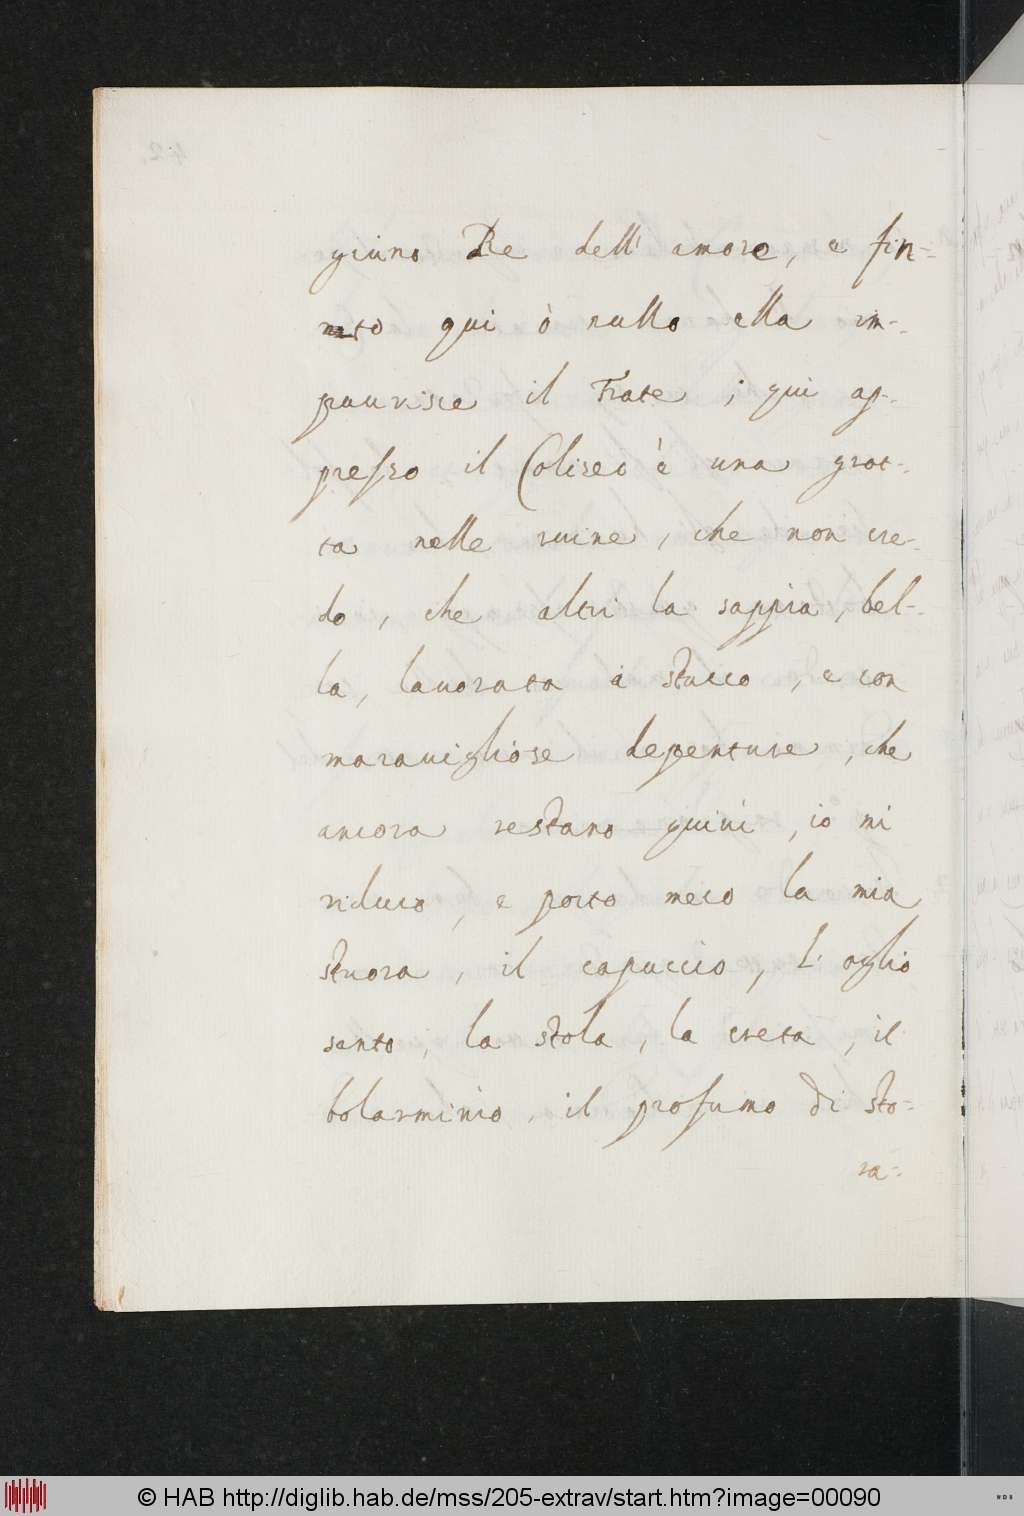 giuno Re dell' amore, e fin-
to qui ò nullo ella im-
paurisce il Frate ; qui ap-
presso il Coliseo è una grot-
ta nelle ruine, che non cre-
do, che altri la sappia, bel-
la, lavorata a stucco, e con
maravigliose depenture, che
ancora restano quivi, io mi
riduco, e porto meco la mia
stuora, il capuccio, l'oglio
santo, la stola, la creta, il
bolarminio, il profumo di sto-
ra-
© HAB http://diglib.hab.de/mss/205-extrav/start.htm?image=00090